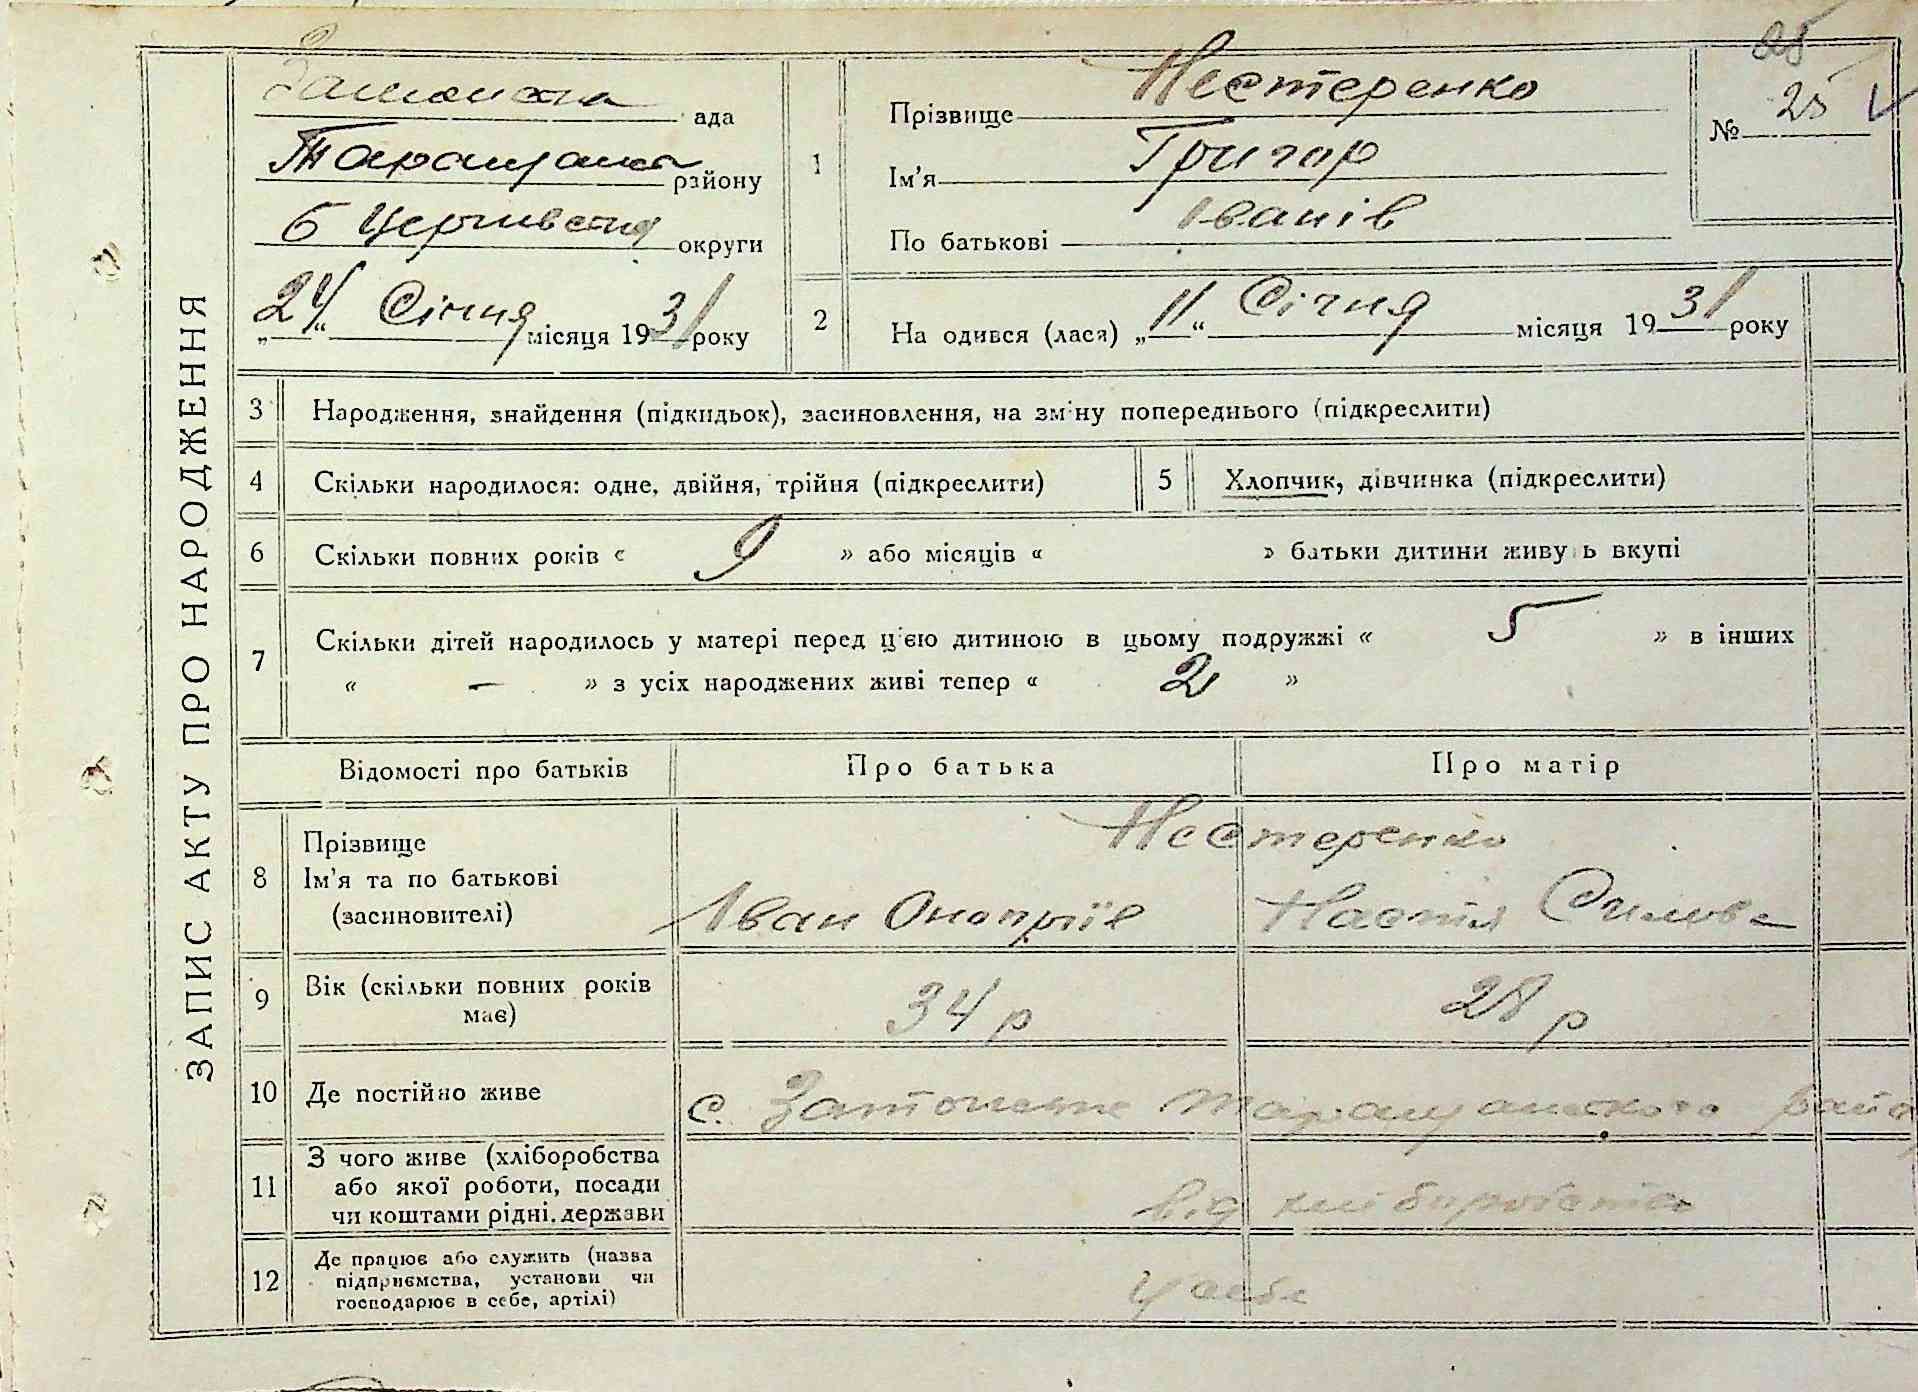 ЗАПИС АКТУ ПРО НАРОДЖЕННЯ
ада
Таращанск району
Б Церківська округи
„24“ Січня місяця 1931 року
1
Прізвище Нестеренко
Ім'я Григор
По батькові Іванів
85
№ 25
2
На одився (лася) „11“ Січня місяця 1931 року
3 Народження, знайдення (підкидьок), засиновлення, на зміну попереднього (підкреслити)
4 Скільки народилося: одне, двійня, трійня (підкреслити)
5 Хлопчик, дівчинка (підкреслити)
6 Скільки повних років « 9 » або місяців « » батьки дитини живу ь вкупі
7 Скільки дітей народилось у матері перед ц'єю дитиною в цьому подружжі « 5 » в інших
« – » з усіх народжених живі тепер « 2 »
Відомості про батьків
Про батька
Про матір
8 Прізвище
Ім'я та по батькові
(засиновителі)
Нестеренко
Іван Онопріїв
Настя Силова
9 Вік (скільки повних років
має)
34 р
28 р
10 Де постійно живе
с. Затонське Таращанського райо
11 З чого живе (хліборобства
або якої роботи, посади
чи коштами рідні, держави
від хліборобства
12 Де працює або служить (назва
підприємства, установи чи
господарює в себе, артілі)
у себе